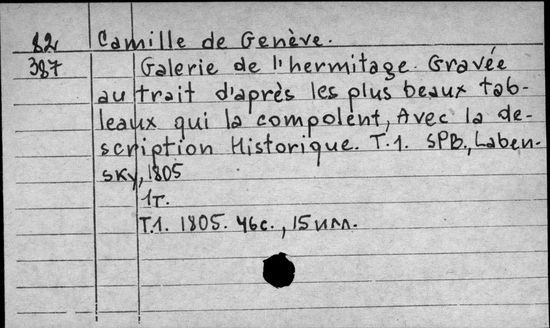 82 Camille de Genève.
387 Galerie de l'hermitage. Gravée
au trait d'après les plus beaux tab-
leaux qui la compolent, Avec la de-
scription Historique. T.1. SPB., Laben-
sky, 1805
1т.
T.1. 1805. 46с., 15илл.